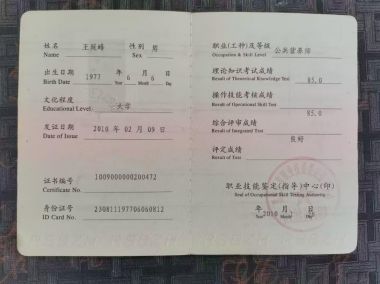 姓名 王延峰 性别 男
Name Sex
出生日期 1977 年 6 月 6 日
Birth Date Year Month Day
文化程度 大学
Educational Level
发证日期 2010 年 02 月 09 日
Date of Issue
证书编号 1009000000200472
Certificate No.
身份证号 230811197706060812
ID Card No.
职业(工种)及等级 公共营养师
Occupation & Skill Level
理论知识考试成绩
Result of Theoretical Knowledge Test 85.0
操作技能考核成绩
Result of Operational Skill Test 85.0
综合评审成绩
Result of Integrated Test 良好
评定成绩
Result of Test
职业技能鉴定(指导)中心(印)
Seal of Occupational Skill Testing Authority
年 月 日
2010 Year Month Day